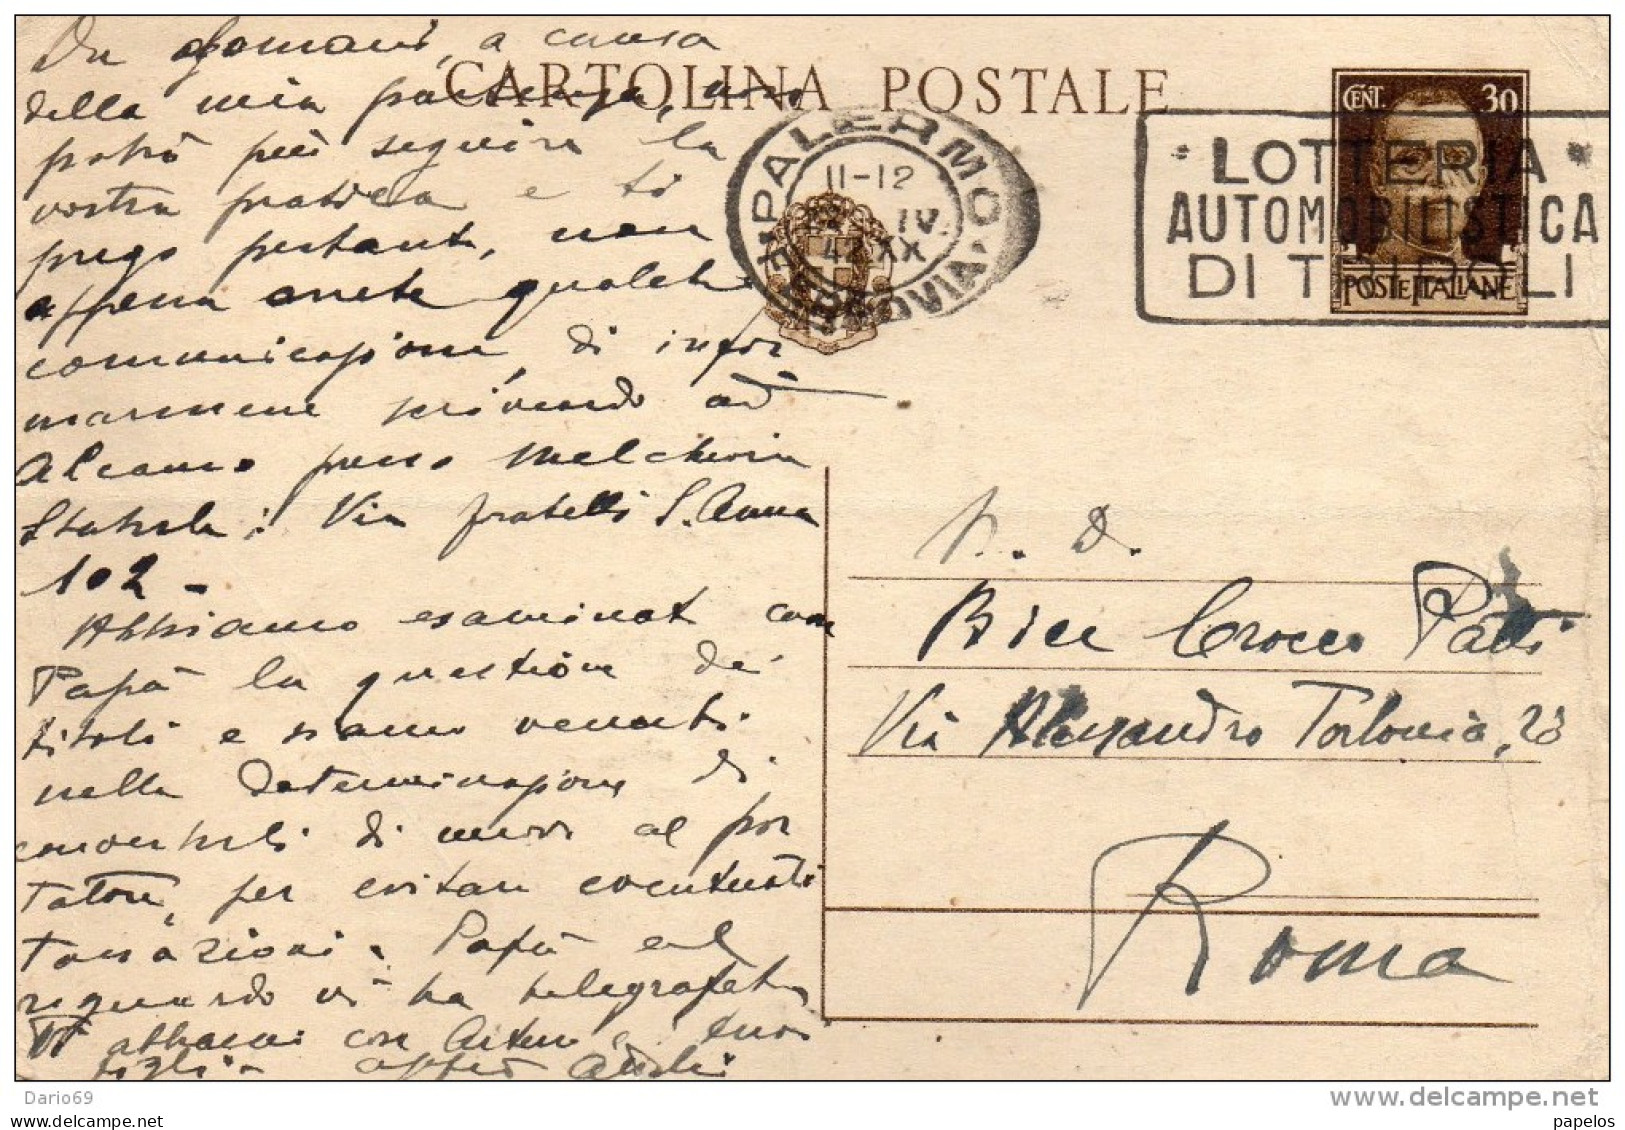 Da domani, a causa
della mia partenza, non
potrò più seguire la
vostra pratica e ti
prego pertanto, non
appena avrete qualche
comunicazione, di infor
marmene scrivendo ad
Alcamo presso Melchiorra
Stabile: Via fratelli S. Anna
102 -
Abbiamo esaminato con
Papà la questione de'
titoli e siamo venuti
nella determinazione di
convertirli di nuovo al por
tatore, per evitare eventuali
tassazioni. Papà al
riguardo vi ha telegrafato
Vi abbracci con Arturo e tuoi
figli
CARTOLINA POSTALE
PALERMO
FERROVIA
11-12
IV.
42 XX
CENT. 30
POSTE ITALIANE
* LOTTERIA *
AUTOMOBILISTICA
DI TRIPOLI
N. D.
Bice Crocco Patti
Via Alessandro Torlonia, 23
Roma
Dario69
www.delcampe.net
papelos